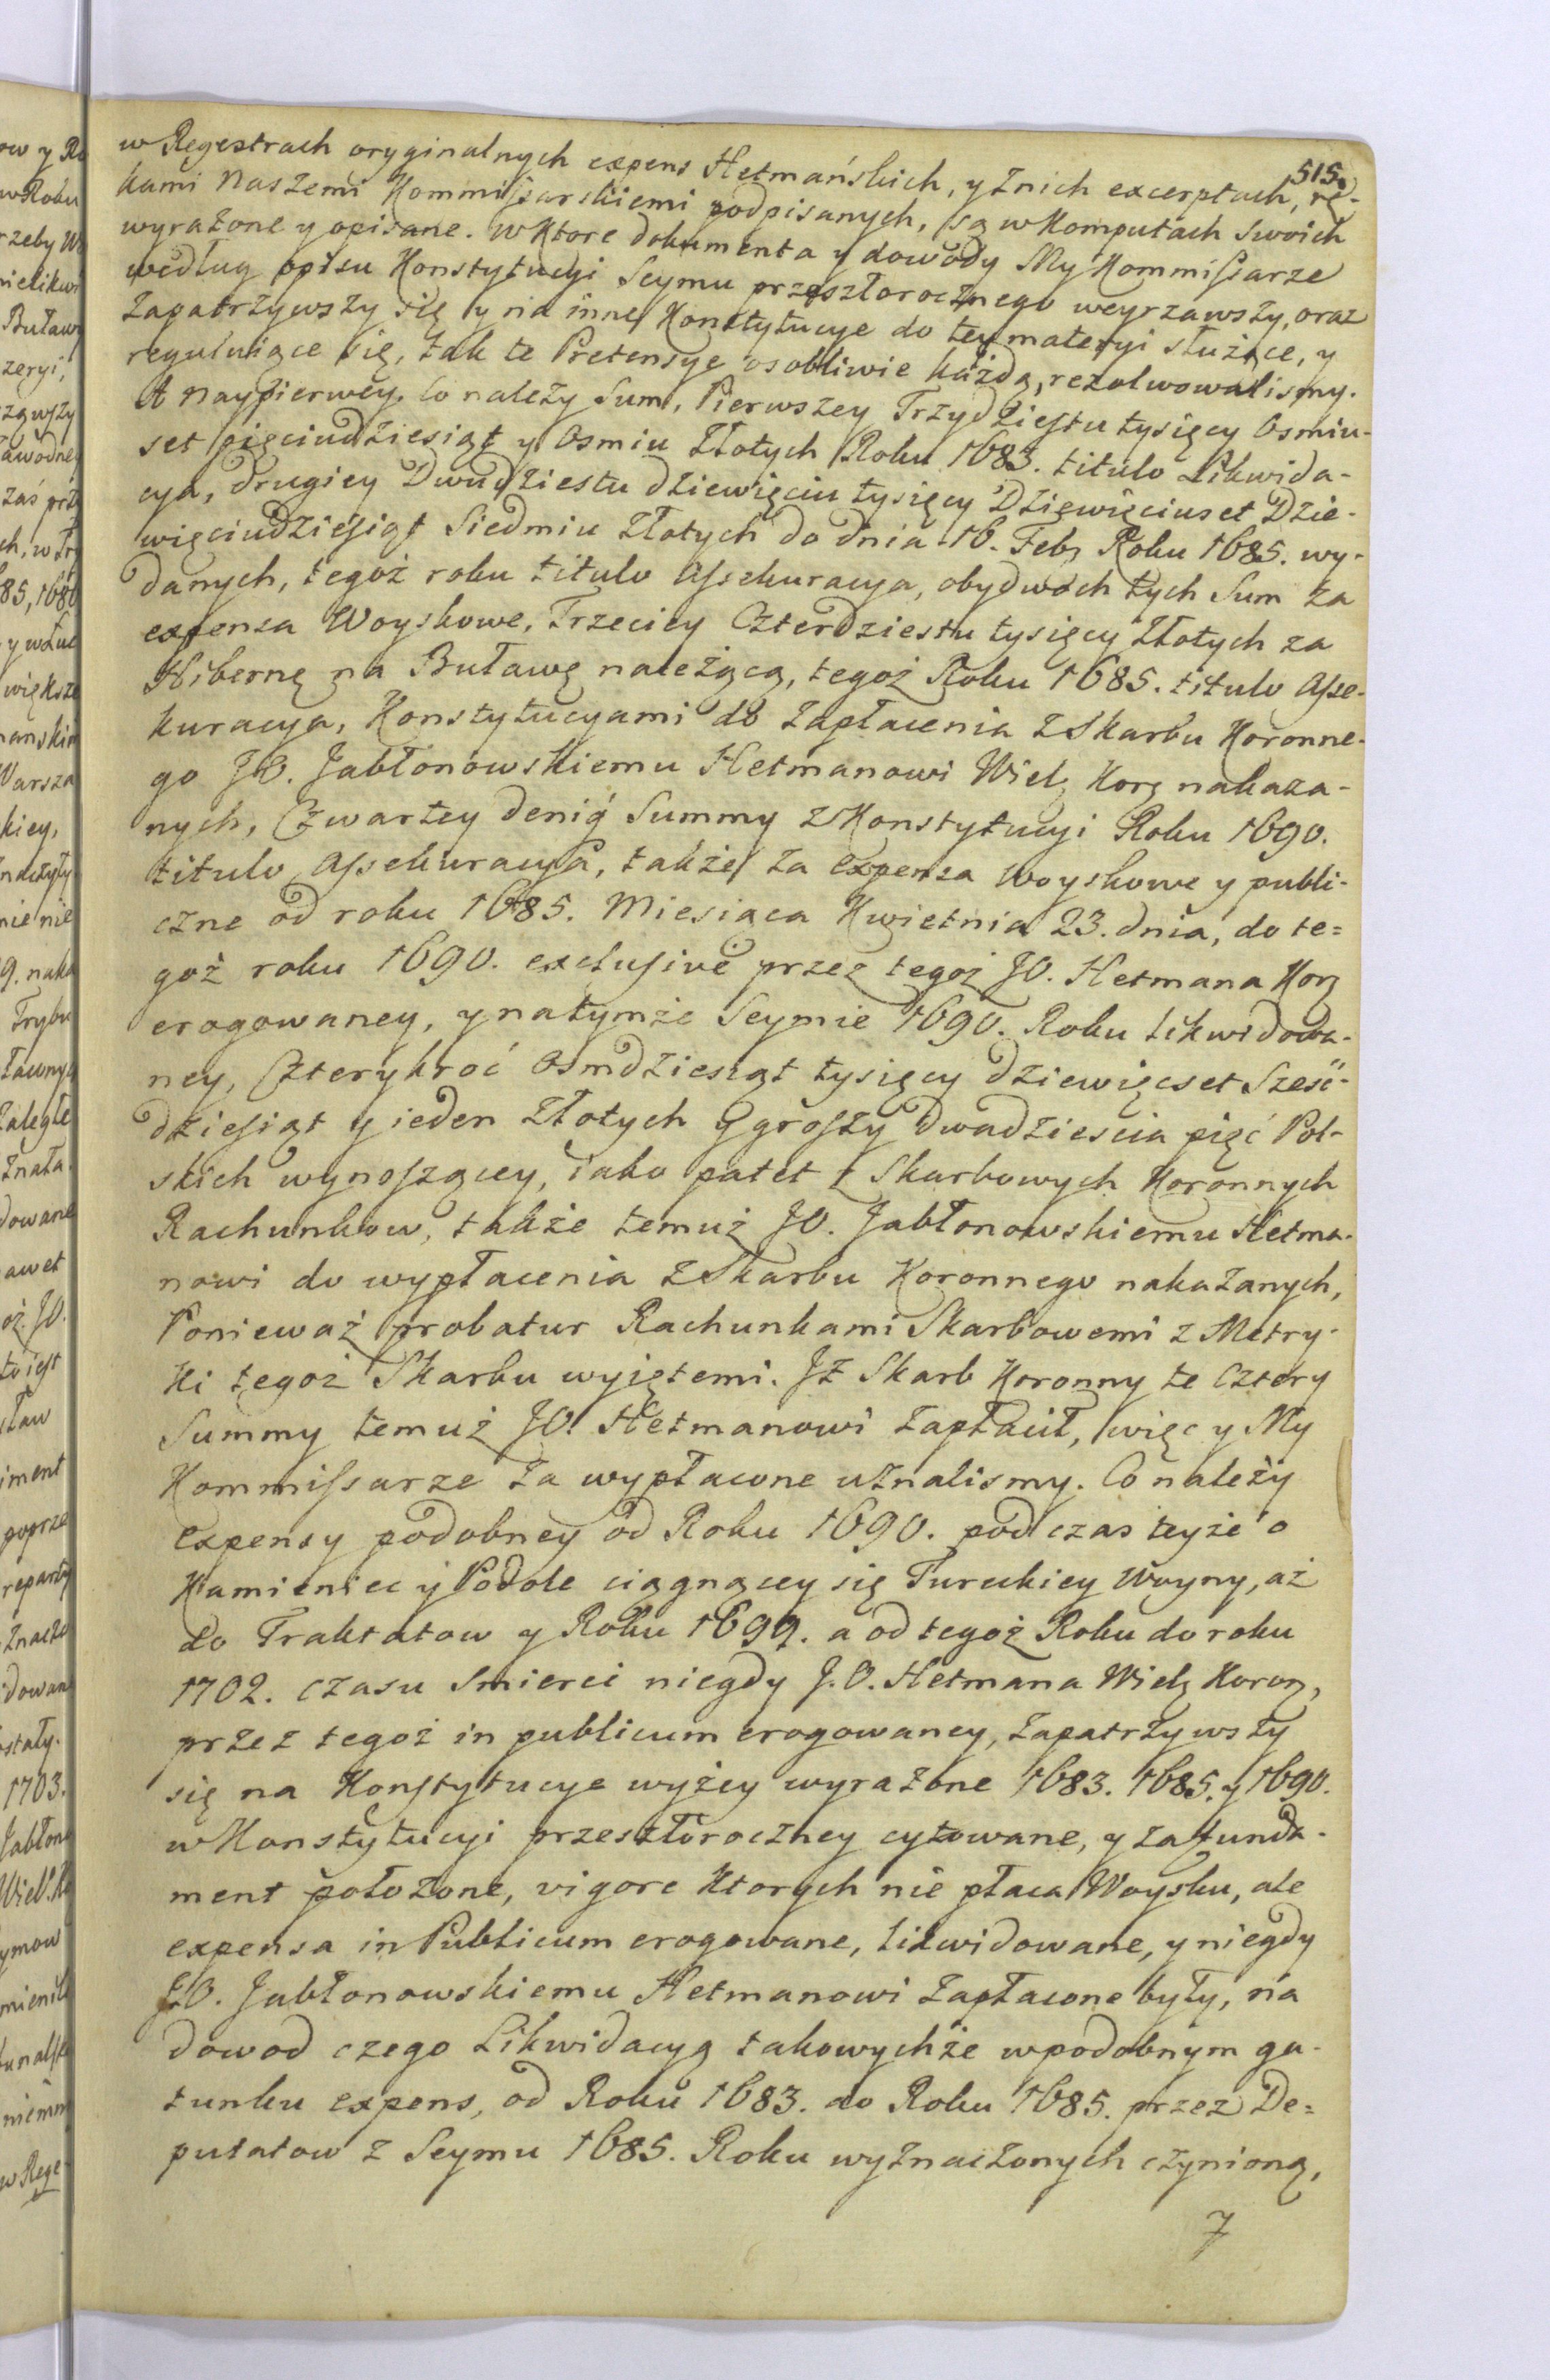 515.
w Regestrach oryginalnych expens Hetmańskich, y z nich excerptach, rę-
kami Naszemi Kommissarskiemi podpisanych, są w Komputach swoich
wyrażone y opisane. W Ktore dokumenta y dowody My Kommissarze
według opisu Konstytucyi Seymu przeszłorocznego weyrzawszy, oraz
zapatrzywszy się y na inne Konstytucye do tey materyi służące, y
reguluiące się, tak te Pretensye osobliwie każdą, rezolwowalismy.
A naypierwey. Co należy Sum, Pierwszey Trzydziestu tysięcy Osmiu-
set pięciudziesiąt y Osmiu Złotych Roku 1683. titulo Likwida-
cya, drugiey Dwudziestu dziewięciu tysięcy Dziewięciuset Dzie-
więciudziesiąt Siedmiu Złotych do dnia 16. Feb. Roku 1685. wy-
danych, tegoż roku titulo Assekuracya, obydwoch tych Sum za
expensa Woyskowe, Trzeciey Czterdziestu tysięcy Złotych za
Hibernę na Buławę należącą, tegoż Roku 1685. titulo Asse-
kuracya, Konstytucyami do zapłacenia z Skarbu Koronne-
go JO. Jabłonowskiemu Hetmanowi Wiel. Kor. nakaza-
nych, Czwartey denią Summy z Konstytucyi Roku 1690.
titulo Assekuracya, także za expensa woyskowe y publi-
czne od roku 1685. Miesiąca Kwietnia 23. dnia, do te=
goż roku 1690. exclusivè przez tegoż JO. Hetmana Kor.
erogowaney, y na tymże Seymie 1690. Roku likwidowa-
ney, Czterykroć Osmdziesiąt tysięcy dziewięcset Sześć-
dziesiąt y ieden Złotych Ggroszy dwadziescia pięć Pol-
skich wynoszącey, iako patet z Skarbowych Koronnych
Rachunkow, także temuż JO. Jabłonowskiemu Hetma-
nowi do wypłacenia z Skarbu Koronnego nakazanych,
Ponieważ probatur Rachunkami Skarbowemi z Metry-
ki tegoż Skarbu wyiętemi. Jż Skarb Koronny te cztery
Summy temuż JO. Hetmanowi zapłacił, więc y My
Kommissarze za wypłacone uznalismy. Co należy
expensy podobney od Roku 1690. podczas teyże o
Kamieniec y Podole ciągnącey się Tureckiey Woyny, aż
do Traktatow y Roku 1699. a od tegoż Roku do roku
1702. czasu Smierci niegdy J.O. Hetmana Wiel. Koron.
przez tegoż in publicum erogowaney, zapatrzywszy
się na Konstytucye wyżey wyrażone 1683. 1685. y 1690.
w Konstytucyi przeszłoroczney cytowane, y za funda-
ment położone, vigore ktorych nie płaca Woysku, ale
expensa in Publicum erogowane, likwidowane, y niegdy
J.O. Jabłonowskiemu Hetmanowi zapłacone były, na
dowod czego Likwidacyą takowychże w podobnym ga-
tunku expens, od Roku 1683. do Roku 1685. przez De=
putatow z Seymu 1685. Roku wyznaczonych czynioną,